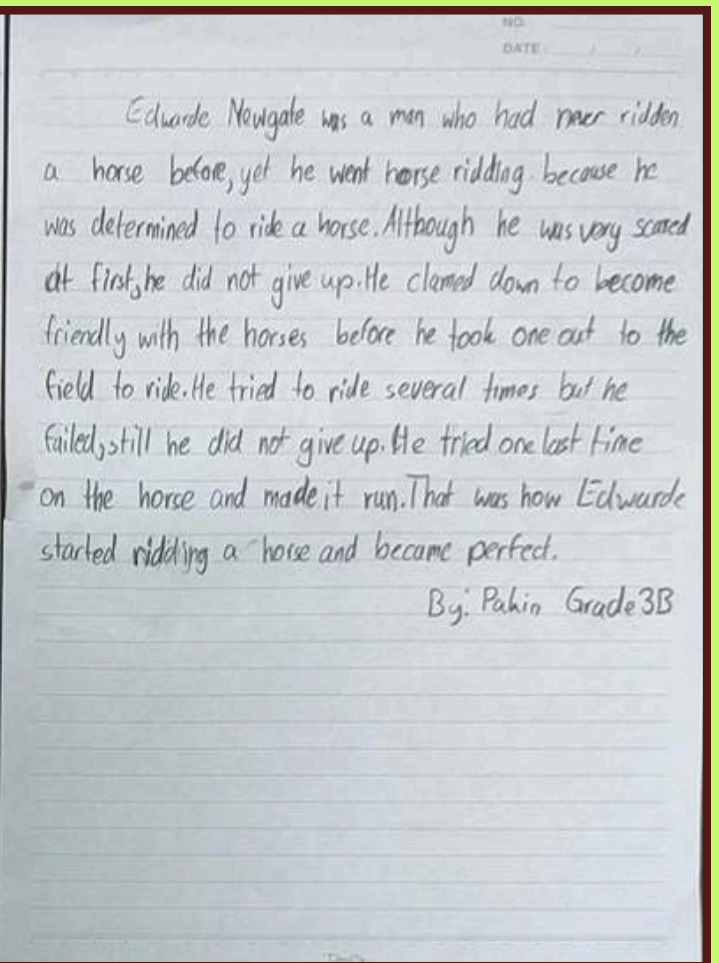 NO.
DATE / /
Edwarde Newgate was a man who had never ridden
a horse before, yet he went horse ridding because he
was determined to ride a horse. Although he was very scared
at first, he did not give up. He clamed down to become
friendly with the horses before he took one out to the
field to ride. He tried to ride several times but he
failed, still he did not give up. He tried one last time
on the horse and made it run. That was how Edwarde
started ridding a horse and became perfect.
By: Pahin Grade 3B